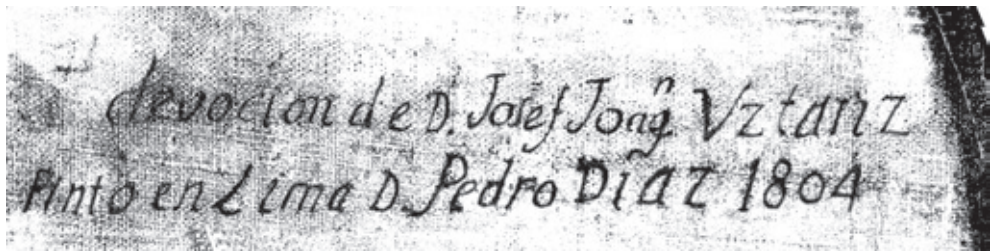 devocion de D. Josef Joaqⁿ Vztariz
Pinto en Lima D. Pedro Diaz 1804